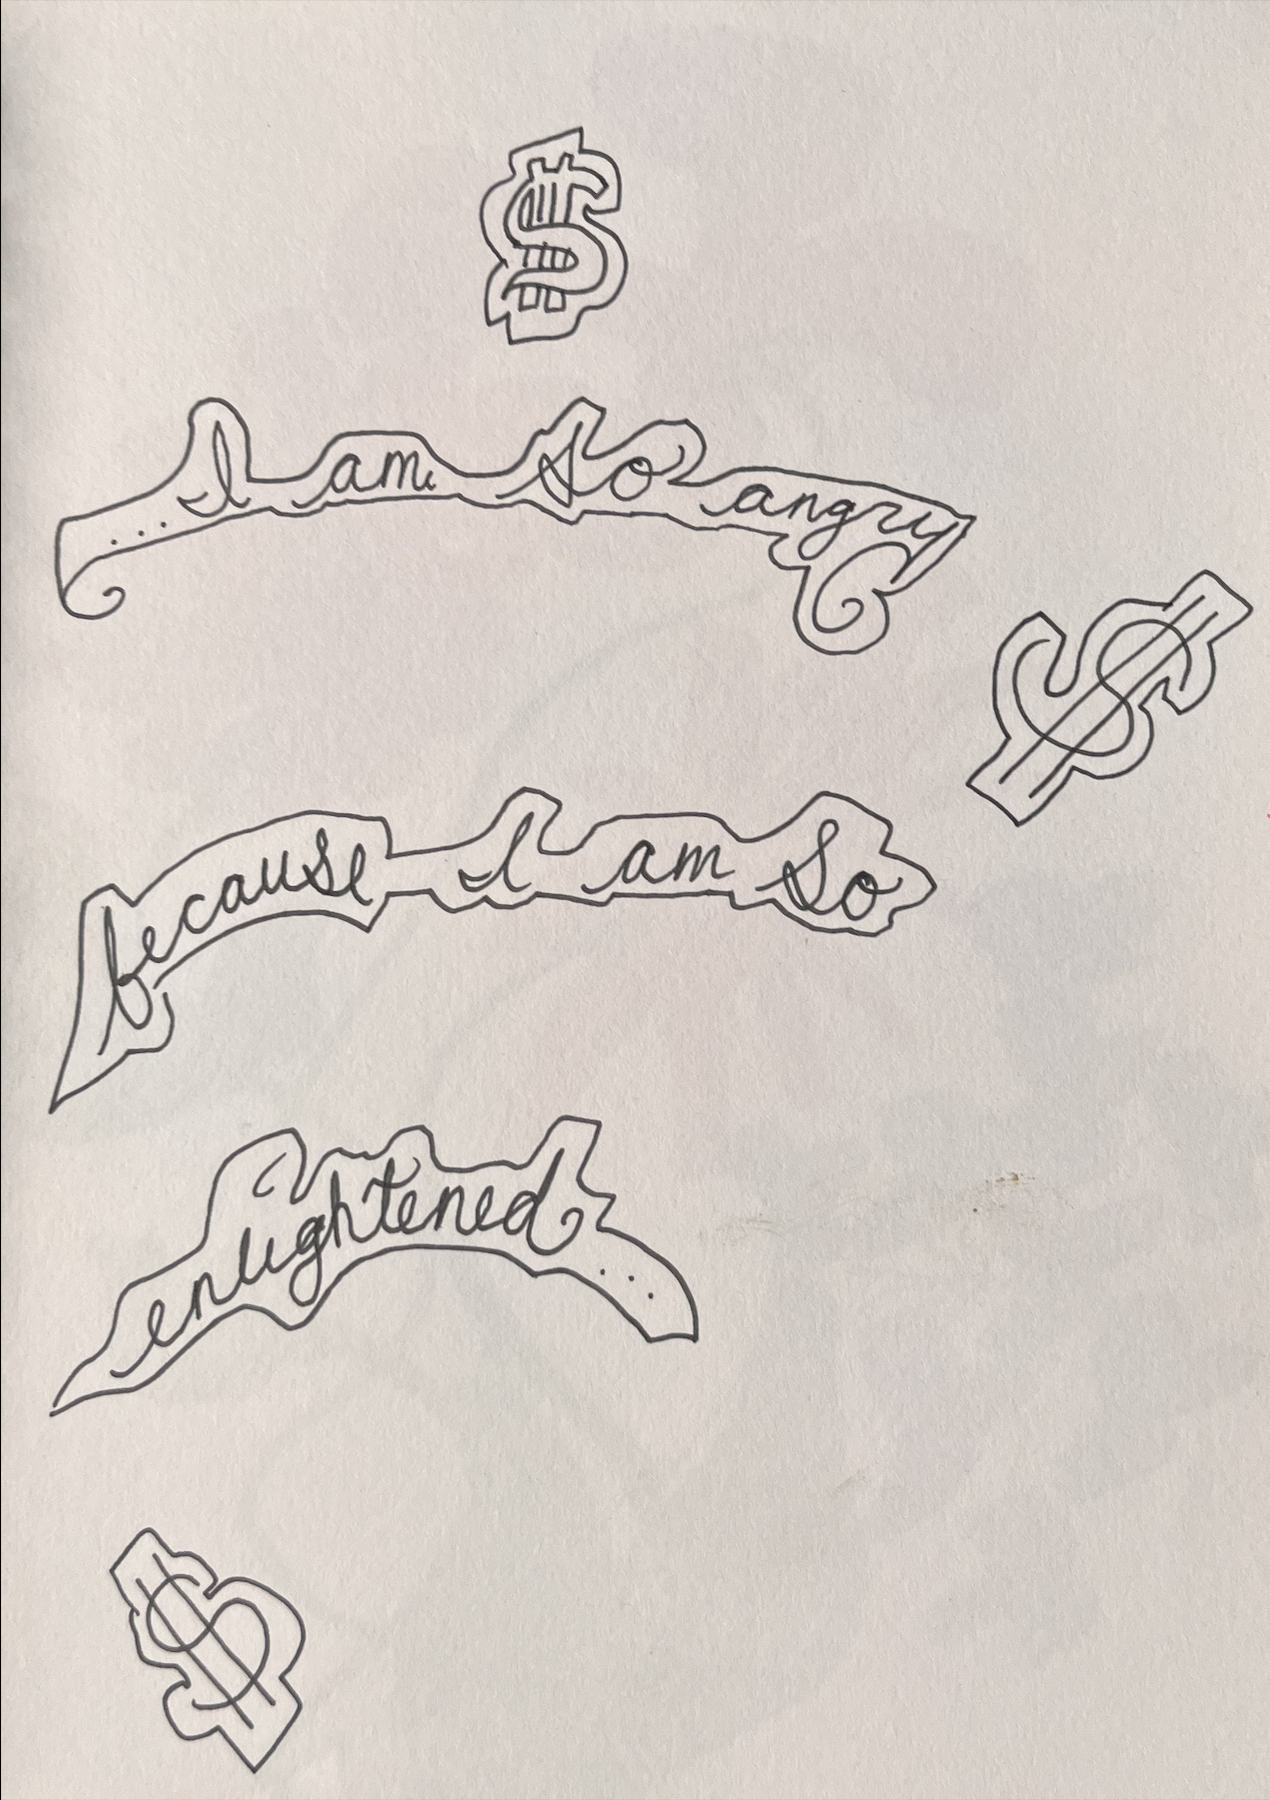 $
...I am so angry
$
because I am so
enlightened...
$